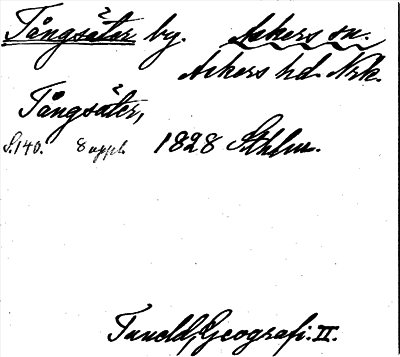 Tångsäter by. Askers sn.
Askers hd. Nrk.
Tångsäter,
S. 140. 8 uppl. 1828 Sthlm.
Tuneld, Geografi. II.